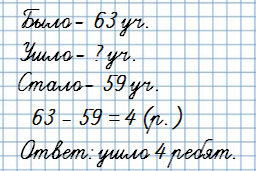 Было - 63 уч.
Ушло - ? уч.
Стало - 59 уч.
63 - 59 = 4 (р.)
Ответ: ушло 4 ребят.